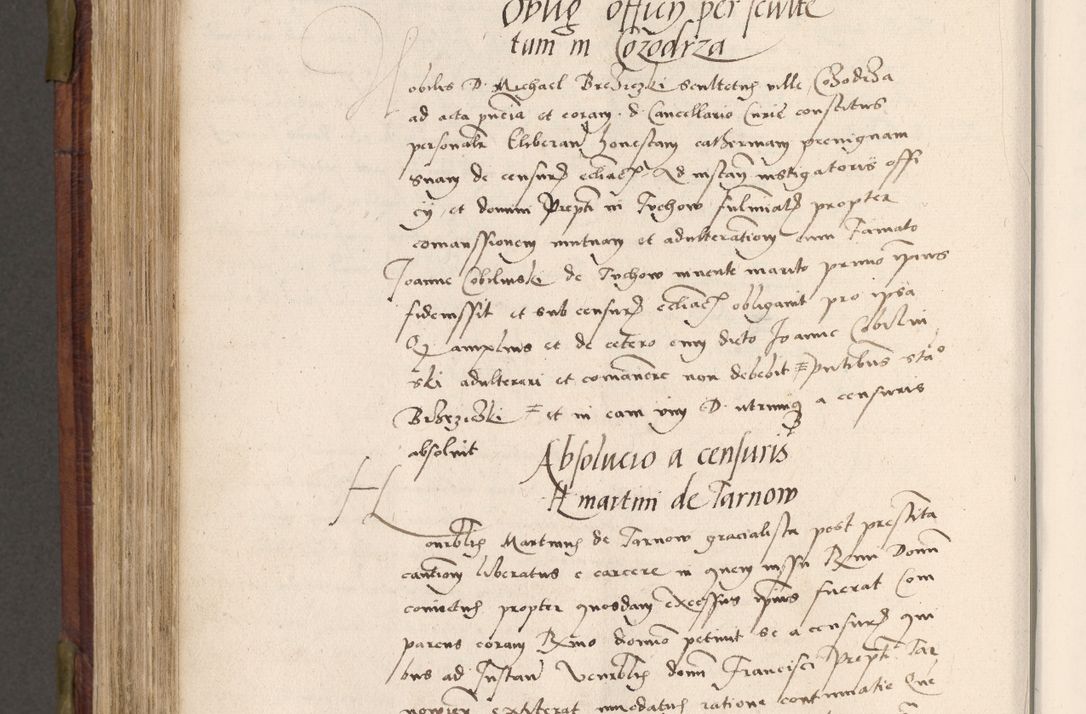 Oblig officij per sculte
tum in Cozodrza
Nobilis D. Michael Brzeziczki scultetus ville Cozodrza
ad acta pn̄cia et coram d Cancellario Curie constitus
personalr Eliberan honestam catherinam prevignam
suam de censuris ecclia Ad instan instigatoris offi
cij et domini prepti in Tuchow fulminatis propter
comanssionem mutuam et adulterationem cum famato
Joanne Cobilinski de Tuchow vivente marito primo ipius
fideiussit et sub censuris eccliac obligavit pro ipsa
Q amplius et de cetero cum dicto Joanne Cobilin
ski adulterari et comanere non debebit
Brzeziczki et in eam vim D. utrumq a censuris
absolvit
Absolucio a censuris
H martini de Tarnow
Honorblis Martinus de Tarnow gracialista post prestita
cautionem liberatus e carcere in quem iussu Rmi Domini
coniectus propter quosdam excessus ipius fuerat Com
parens coram Rmo domino petivit se a censuris qui
bus ad Instan Venerblis domini Francisci Prepti Tar
novien extiterat innodatus ratione continuatie Que